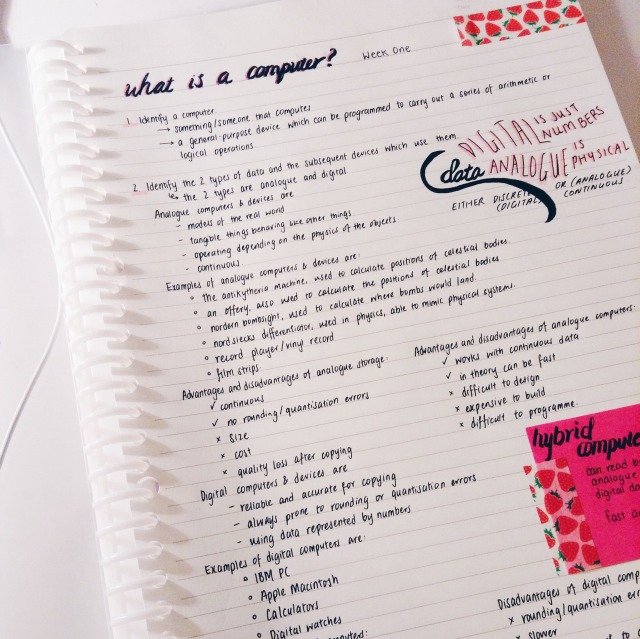 what is a computer?
Week One
1. Identify a computer
→ something/someone that computes
→ a general-purpose device which can be programmed to carry out a series of arithmetic or
logical operations
2. Identify the 2 types of data and the subsequent devices which use them.
↳ the 2 types are analogue and digital
data
DIGITAL IS JUST NUMBERS
ANALOGUE IS PHYSICAL
EITHER DISCRETE (DIGITAL)
OR (ANALOGUE) CONTINUOUS
Analogue computers & devices are
- models of the real world
- tangible things behaving like other things
- operating depending on the physics of the objects
- continuous
Examples of analogue computers & devices are:
° the antikytheria machine, used to calculate positions of celestial bodies.
° an offery, also used to calculate the positions of celestial bodies
° nordern bombsight, used to calculate where bombs would land.
° nordsiecks differentiator, used in physics, able to mimic physical systems.
° record player/vinyl record
° film strips.
Advantages and disadvantages of analogue storage:
✓ continuous
✓ no rounding/quantisation errors
× size
× cost
× quality loss after copying
Advantages and disadvantages of analogue computers:
✓ works with continuous data
✓ in theory can be fast
× difficult to design
× expensive to build
× difficult to programme.
Digital computers & devices are
- reliable and accurate for copying
- always prone to rounding or quantisation errors
- using data represented by numbers
Examples of digital computers are:
° IBM PC
° Apple Macintosh
° Calculators
° Digital watches
computers:
hybrid
compute
can read b
analogue
digital da
fast a
Disadvantages of digital comp
× rounding/quantisation err
× slower